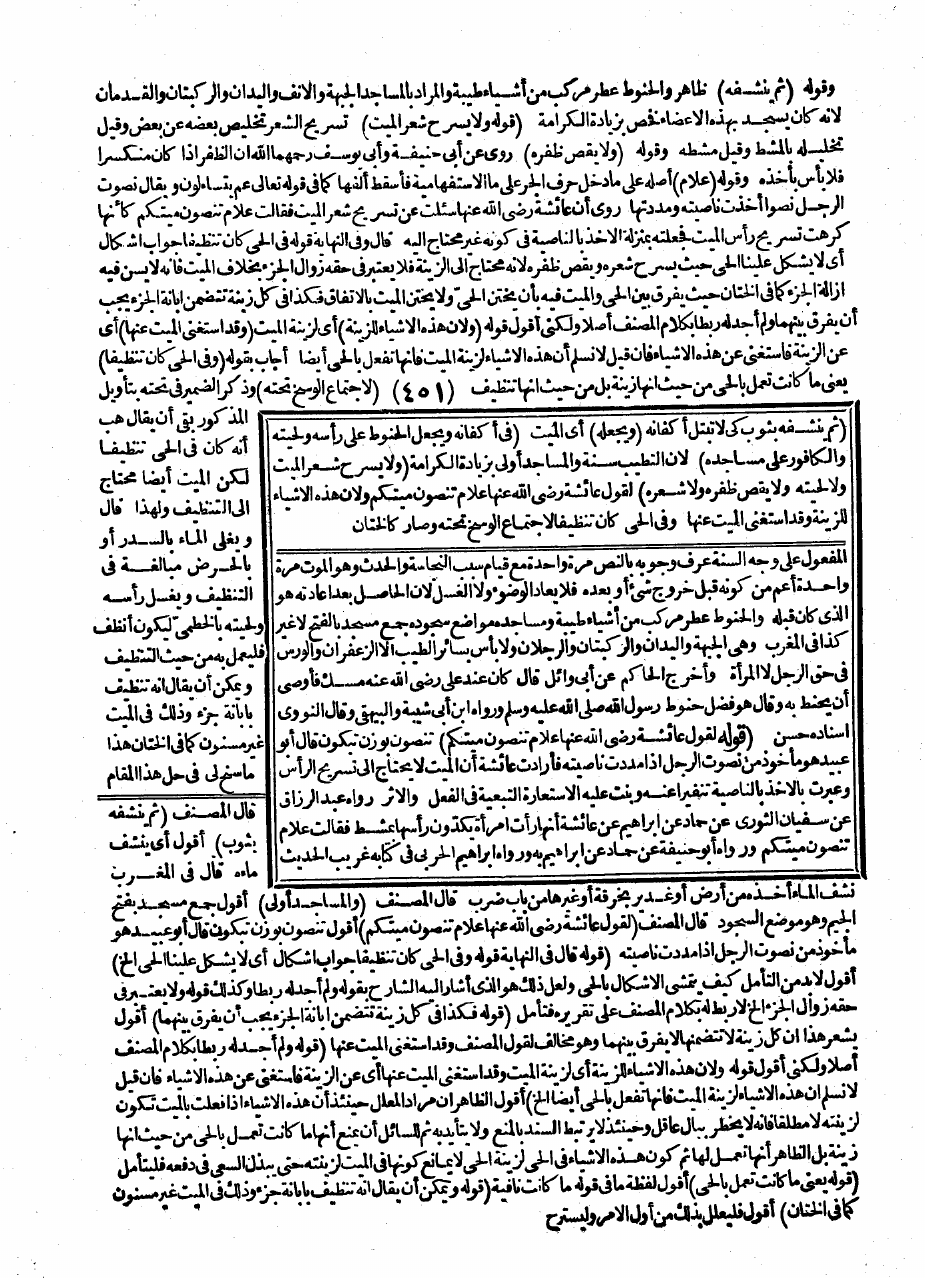 وقوله (ثم ينشفه) ظاهر والحنوط عطر مركب من أشياء طيبة والمراد بالمساجد الجبهة والانف واليدان والركبتان والقدمان
لانه كان يسجد بهذه الاعضاء فخص بزيادة الكرامة (قوله ولا يسرح شعر الميت) تسريح الشعر تخليص بعضه عن بعض وقيل
تخليله بالمشط وقيل مشطه وقوله (ولا يقص ظفره) روى عن أبى حنيفة وأبى يوسف رحمهما الله ان الظفر اذا كان منكسرا
فلا بأس بأخذه وقوله (علام) أصله على ما دخل حرف الجر على ما الاستفهامية فأسقط ألفها كما فى قوله تعالى عم يتساءلون ويقال نصوت
الرجل نصوا أخذت ناصيته ومددتها روى أن عائشة رضى الله عنها سئلت عن تسريح شعر الميت فقالت علام تنصون ميتكم كأنها
كرهت تسريح رأس الميت فجعلته بمنزلة الاخذ بالناصية فى كونه غير محتاج اليه قال وفى النهاية قوله فى الحى كان تنظيفا جواب اشكال
أى لا يشكل علينا الحى حيث يسرح شعره ويقص ظفره لانه محتاج الى الزينة فلا يعتبر فى حقه زوال الجزء بخلاف الميت فانه لا يسن فيه
ازالة الجزء كما فى الختان حيث يفرق بين الحى والميت فيه بأن يختن الحى ولا يختن الميت بالاتفاق فكذا فى كل زينة تتضمن ابانة الجزء يجب
أن يفرق بينهما ولم أجد له ربطا بكلام المصنف أصلا ولكنى أقول قوله (ولان هذه الاشياء للزينة) أى لزينة الميت (وقد استغنى الميت عنها) أى
عن الزينة فاستغنى عن هذه الاشياء فان قيل لا نسلم أن هذه الاشياء لزينة الميت فانها تفعل بالحى أيضا أجاب بقوله (وفى الحى كان تنظيفا)
يعنى ما كانت تعمل بالحى من حيث انها زينة بل من حيث انها تنظيف (٤٥١) (لاجتماع الوسخ تحته) وذكر الضمير فى تحته بتأويل
المذكور بقى أن يقال هب
أنه كان فى الحى تنظيفا
لكن الميت أيضا محتاج
الى التنظيف ولهذا قال
ويغلى الماء بالسدر أو
بالحرض مبالغة فى
التنظيف ويغسل رأسه
ولحيته بالخطمى ليكون أنظف
فليعمل به من حيث التنظيف
ويمكن أن يقال انه تنظيف
بابانة جزء وذلك فى الميت
غير مسنون كما فى الختان هذا
ما سنح لى فى حل هذا المقام
(ثم ينشفه بثوب كى لا تبتل أكفانه (ويجعله) أى الميت (فى أكفانه ويجعل الحنوط على رأسه ولحيته
والكافور على مساجده) لان التطيب سنة والمساجد أولى بزيادة الكرامة (ولا يسرح شعر الميت
ولا لحيته ولا يقص ظفره ولا شعره) لقول عائشة رضى الله عنها علام تنصون ميتكم ولان هذه الاشياء
للزينة وقد استغنى الميت عنها وفى الحى كان تنظيفا لاجتماع الوسخ تحته وصار كالختان
المفعول على وجه السنة عرف وجوبه بالنص مرة واحدة مع قيام سبب النجاسة والحدث وهو الموت مرة
واحدة أعم من كونه قبل خروج شئ أو بعده فلا يعاد الوضوء ولا الغسل لان الحاصل بعد اعادته هو
الذى كان قبله والحنوط عطر مركب من أشياء طيبة ومساجده مواضع سجوده جمع مسجد بالفتح لا غير
كذا فى المغرب وهى الجبهة واليدان والركبتان والرجلان ولا بأس بسائر الطيب الا الزعفران والورس
فى حق الرجل لا المرأة وأخرج الحاكم عن أبى وائل قال كان عند على رضى الله عنه مسك فأوصى
أن يحنط به وقال هو فضل حنوط رسول الله صلى الله عليه وسلم ورواه ابن أبى شيبة والبيهقى وقال النووى
اسناده حسن (قوله لقول عائشة رضى الله عنها علام تنصون ميتكم) تنصون بوزن تبكون قال أبو
عبيد هو مأخوذ من نصوت الرجل اذا مددت ناصيته فأرادت عائشة أن الميت لا يحتاج الى تسريح الرأس
وعبرت بالاخذ بالناصية تنفيرا عنه وبنت عليه الاستعارة التبعية فى الفعل والاثر رواه عبد الرزاق
عن سفيان الثورى عن حماد عن ابراهيم عن عائشة أنها رأت امرأة يكدون رأسها بمشط فقالت علام
تنصون ميتكم ورواه أبو حنيفة عن حماد عن ابراهيم به ورواه ابراهيم الحربى فى كتابه غريب الحديث
قال المصنف (ثم ينشفه
بثوب) أقول أى ينشف
ماءه قال فى المغرب
نشف الماء أخذه من أرض أو غدير بخرقة أو غيرها من باب ضرب قال المصنف (والمساجد أولى) أقول جمع مسجد بفتح
الجيم وهو موضع السجود قال المصنف (لقول عائشة رضى الله عنها علام تنصون ميتكم) أقول تنصون بوزن تبكون قال أبو عبيد هو
مأخوذ من نصوت الرجل اذا مددت ناصيته (قوله قال فى النهاية قوله وفى الحى كان تنظيفا جواب اشكال أى لا يشكل علينا الحى الخ)
أقول لا بد من التأمل كيف يتمشى الاشكال بالحى ولعل ذلك هو الذى أشار اليه الشارح بقوله ولم أجد له ربطا وكذلك قوله ولا يعتبر فى
حقه زوال الجزء الخ لا ربط له بكلام المصنف على تقريره فتأمل (قوله فكذا فى كل زينة تتضمن ابانة الجزء يجب أن يفرق بينهما) أقول
يشعر هذا ان كل زينة لا تتضمنها لا يفرق بينهما وهو مخالف لقول المصنف وقد استغنى الميت عنها (قوله ولم أجد له ربطا بكلام المصنف
أصلا ولكنى أقول قوله ولان هذه الاشياء للزينة أى لزينة الميت وقد استغنى الميت عنها أى عن الزينة فاستغنى عن هذه الاشياء فان قيل
لا نسلم ان هذه الاشياء لزينة الميت فانها تفعل بالحى أيضا الخ) أقول الظاهر ان مراد المعلل حينئذ أن هذه الاشياء اذا فعلت بالميت تكون
لزينته لا مطلقا فانه لا يخطر ببال عاقل وحينئذ لا يرتبط السند بالمنع ولا يتأيد به ثم للسائل أن يمنع أنها ما كانت تعمل بالحى من حيث انها
زينة بل الظاهر أنها تعمل لها ثم كون هذه الاشياء فى الحى لزينة الحى لا يمانع كونها فى الميت لزينته حتى يبذل السعى فى دفعه فليتأمل
(قوله يعنى ما كانت تعمل بالحى) أقول لفظة ما فى قوله ما كانت نافية (قوله ويمكن أن يقال انه تنظيف بابانة جزء وذلك فى الميت غير مسنون
كما فى الختان) أقول فليعلل بذلك من أول الامر وليسترح